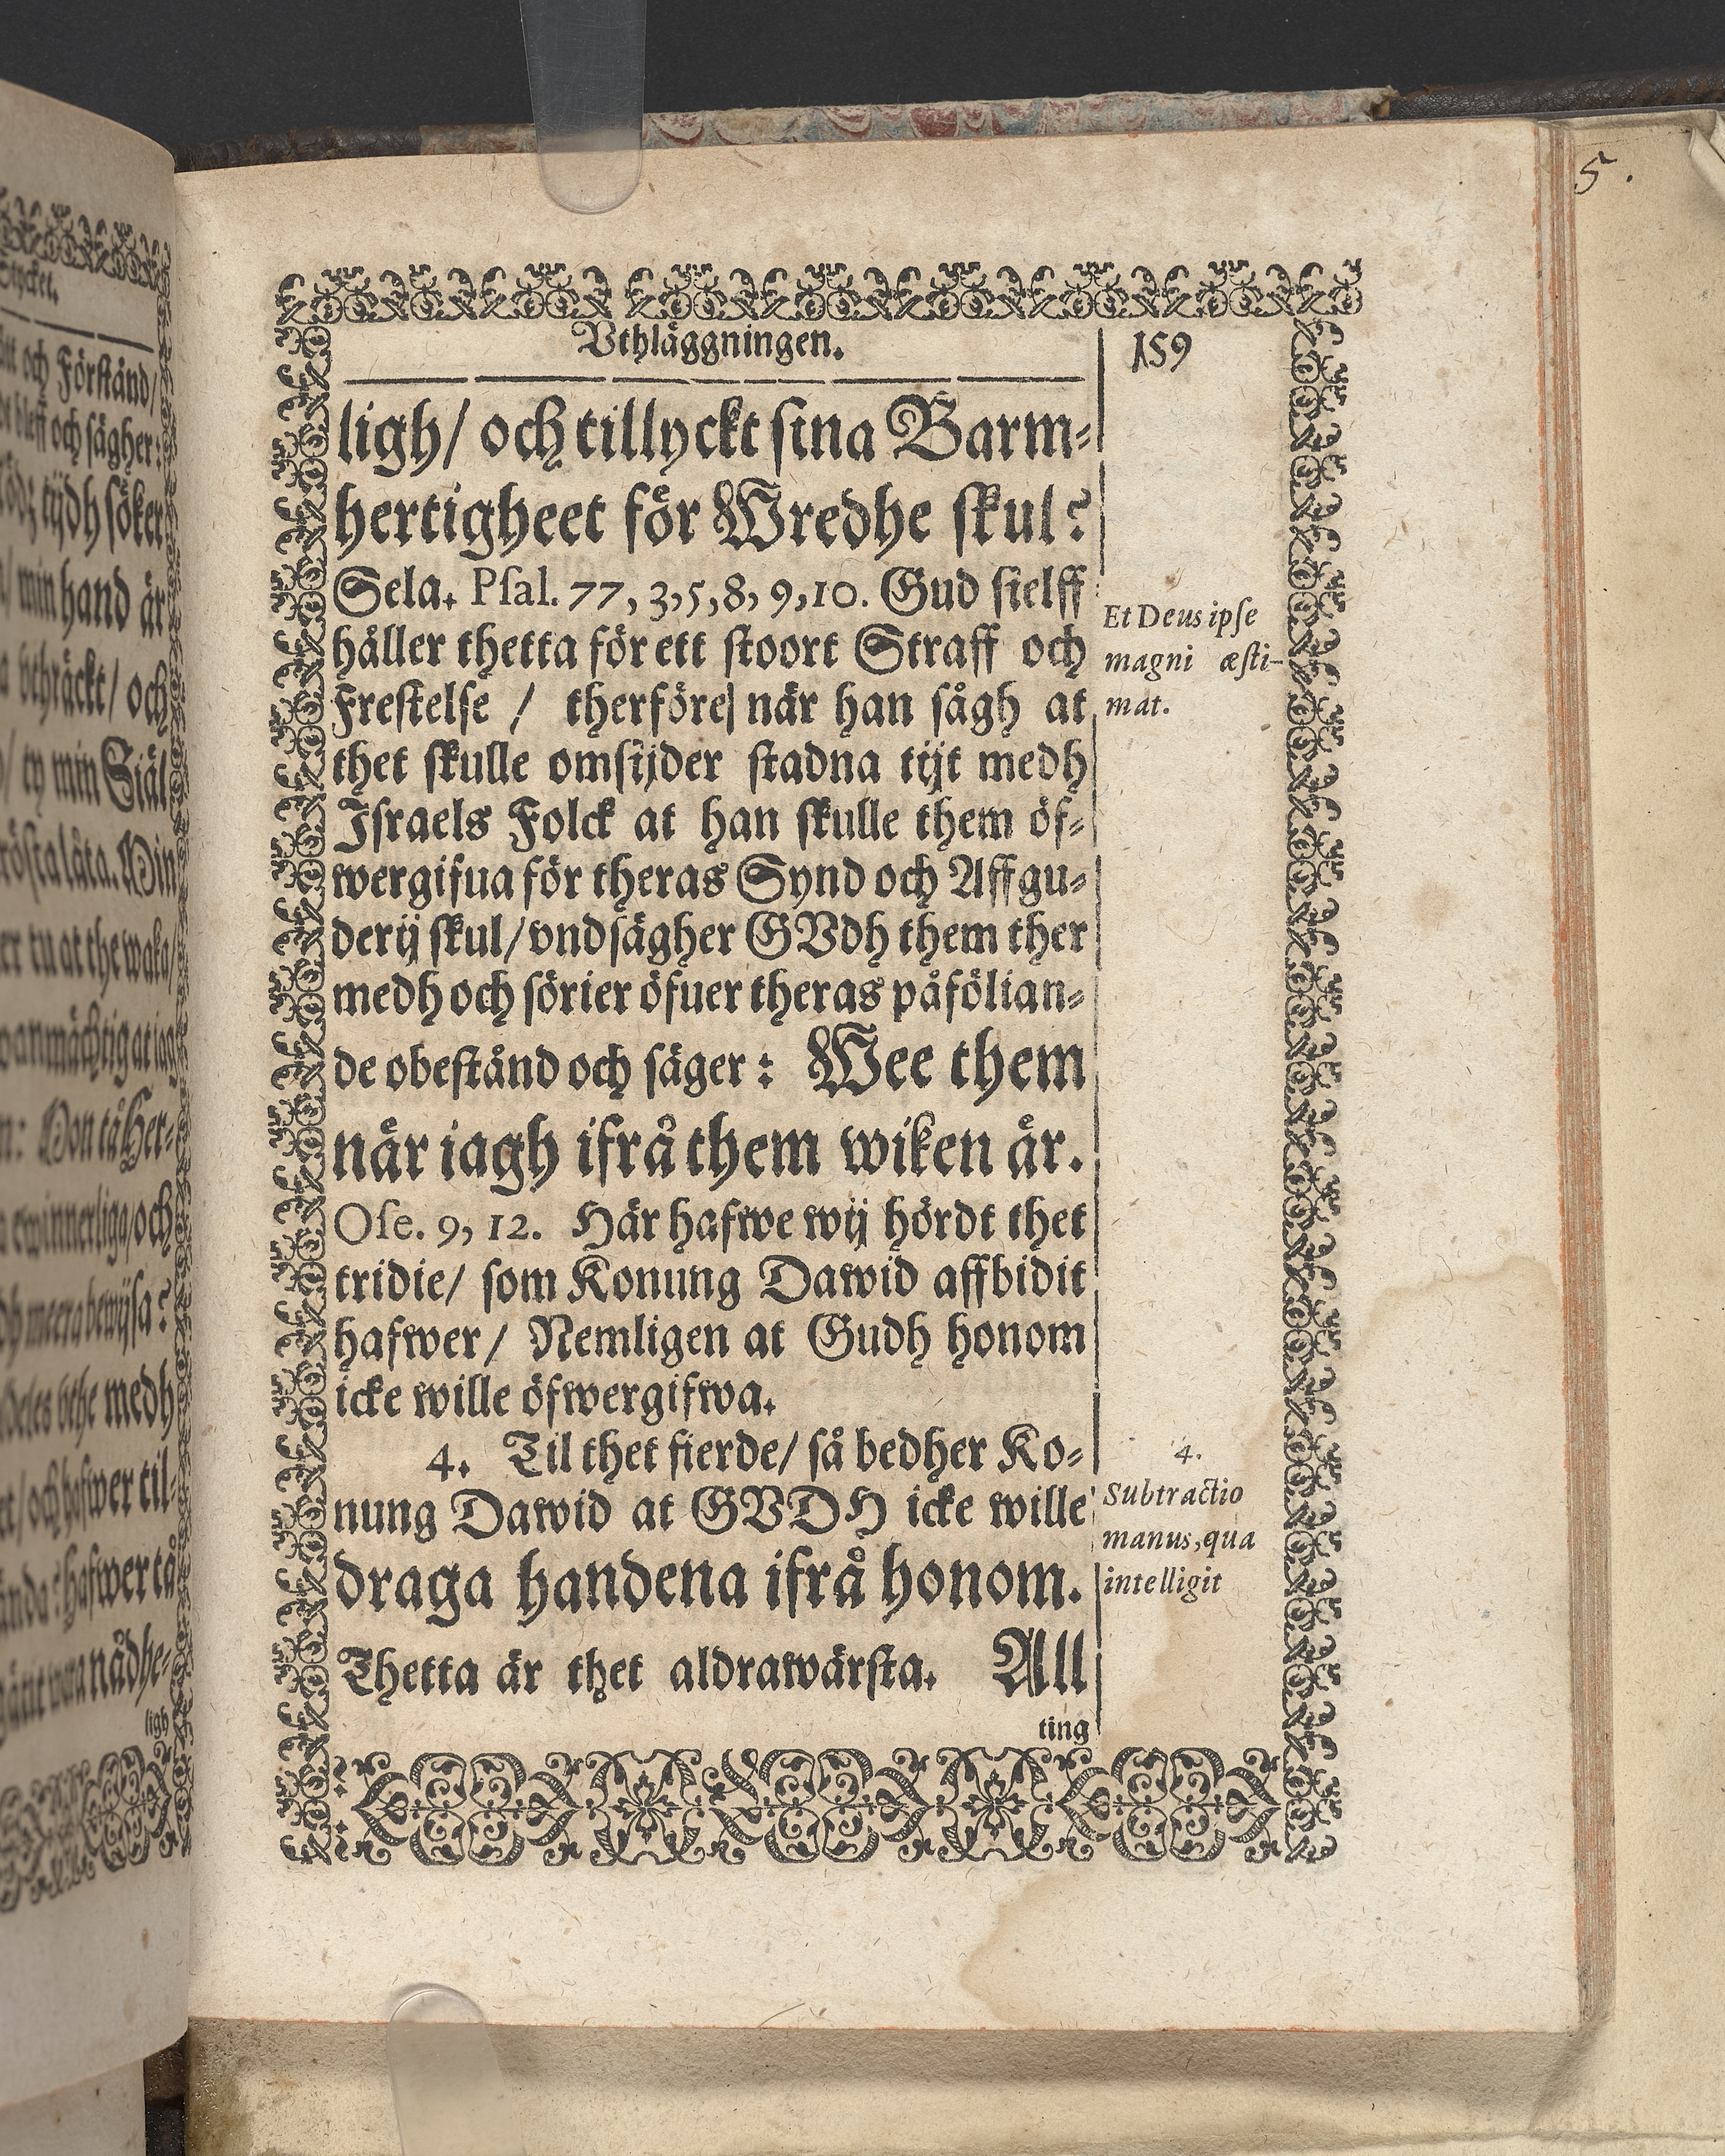 Stycket.
och Förstånd/
bleff och sägher:
tijdh söker
min hand är
vthräckt/ och
ty min Siäl
låta. Min
tu at the waka/
at iagh
och
meera bewijsa?
medh
och hafwer til-
hafwer tå
nådhe-
ligh
5.
Vthläggningen.
159
ligh/ och tillyckt sina Barm-
hertigheet för Wredhe skul?
Sela. Psal. 77, 3,5,8, 9,10. Gud sielff
håller thetta för ett stoort Straff och
Frestelse / therföre| när han sågh at
thet skulle omsijder stadna tijt medh
Israels Folck at han skulle them öf-
wergifua för theras Synd och Affgu-
derij skul/ vndsägher GVdh them ther
medh och sörier öfuer theras påfölian-
de obestånd och säger: Wee them
när iagh ifrå them wiken är.
Ose. 9, 12. Här hafwe wij hördt thet
tridie/ som Konung Dawid affbidit
hafwer/ Nemligen at Gudh honom
icke wille öfwergifwa.
4. Til thet fierde/ så bedher Ko-
nung Dawid at GVDH icke wille
draga handena ifrå honom.
Thetta är thet aldrawärsta. All
ting
Et Deus ipse
magni æsti-
mat.
4.
Subtractio
manus, qua
intelligit